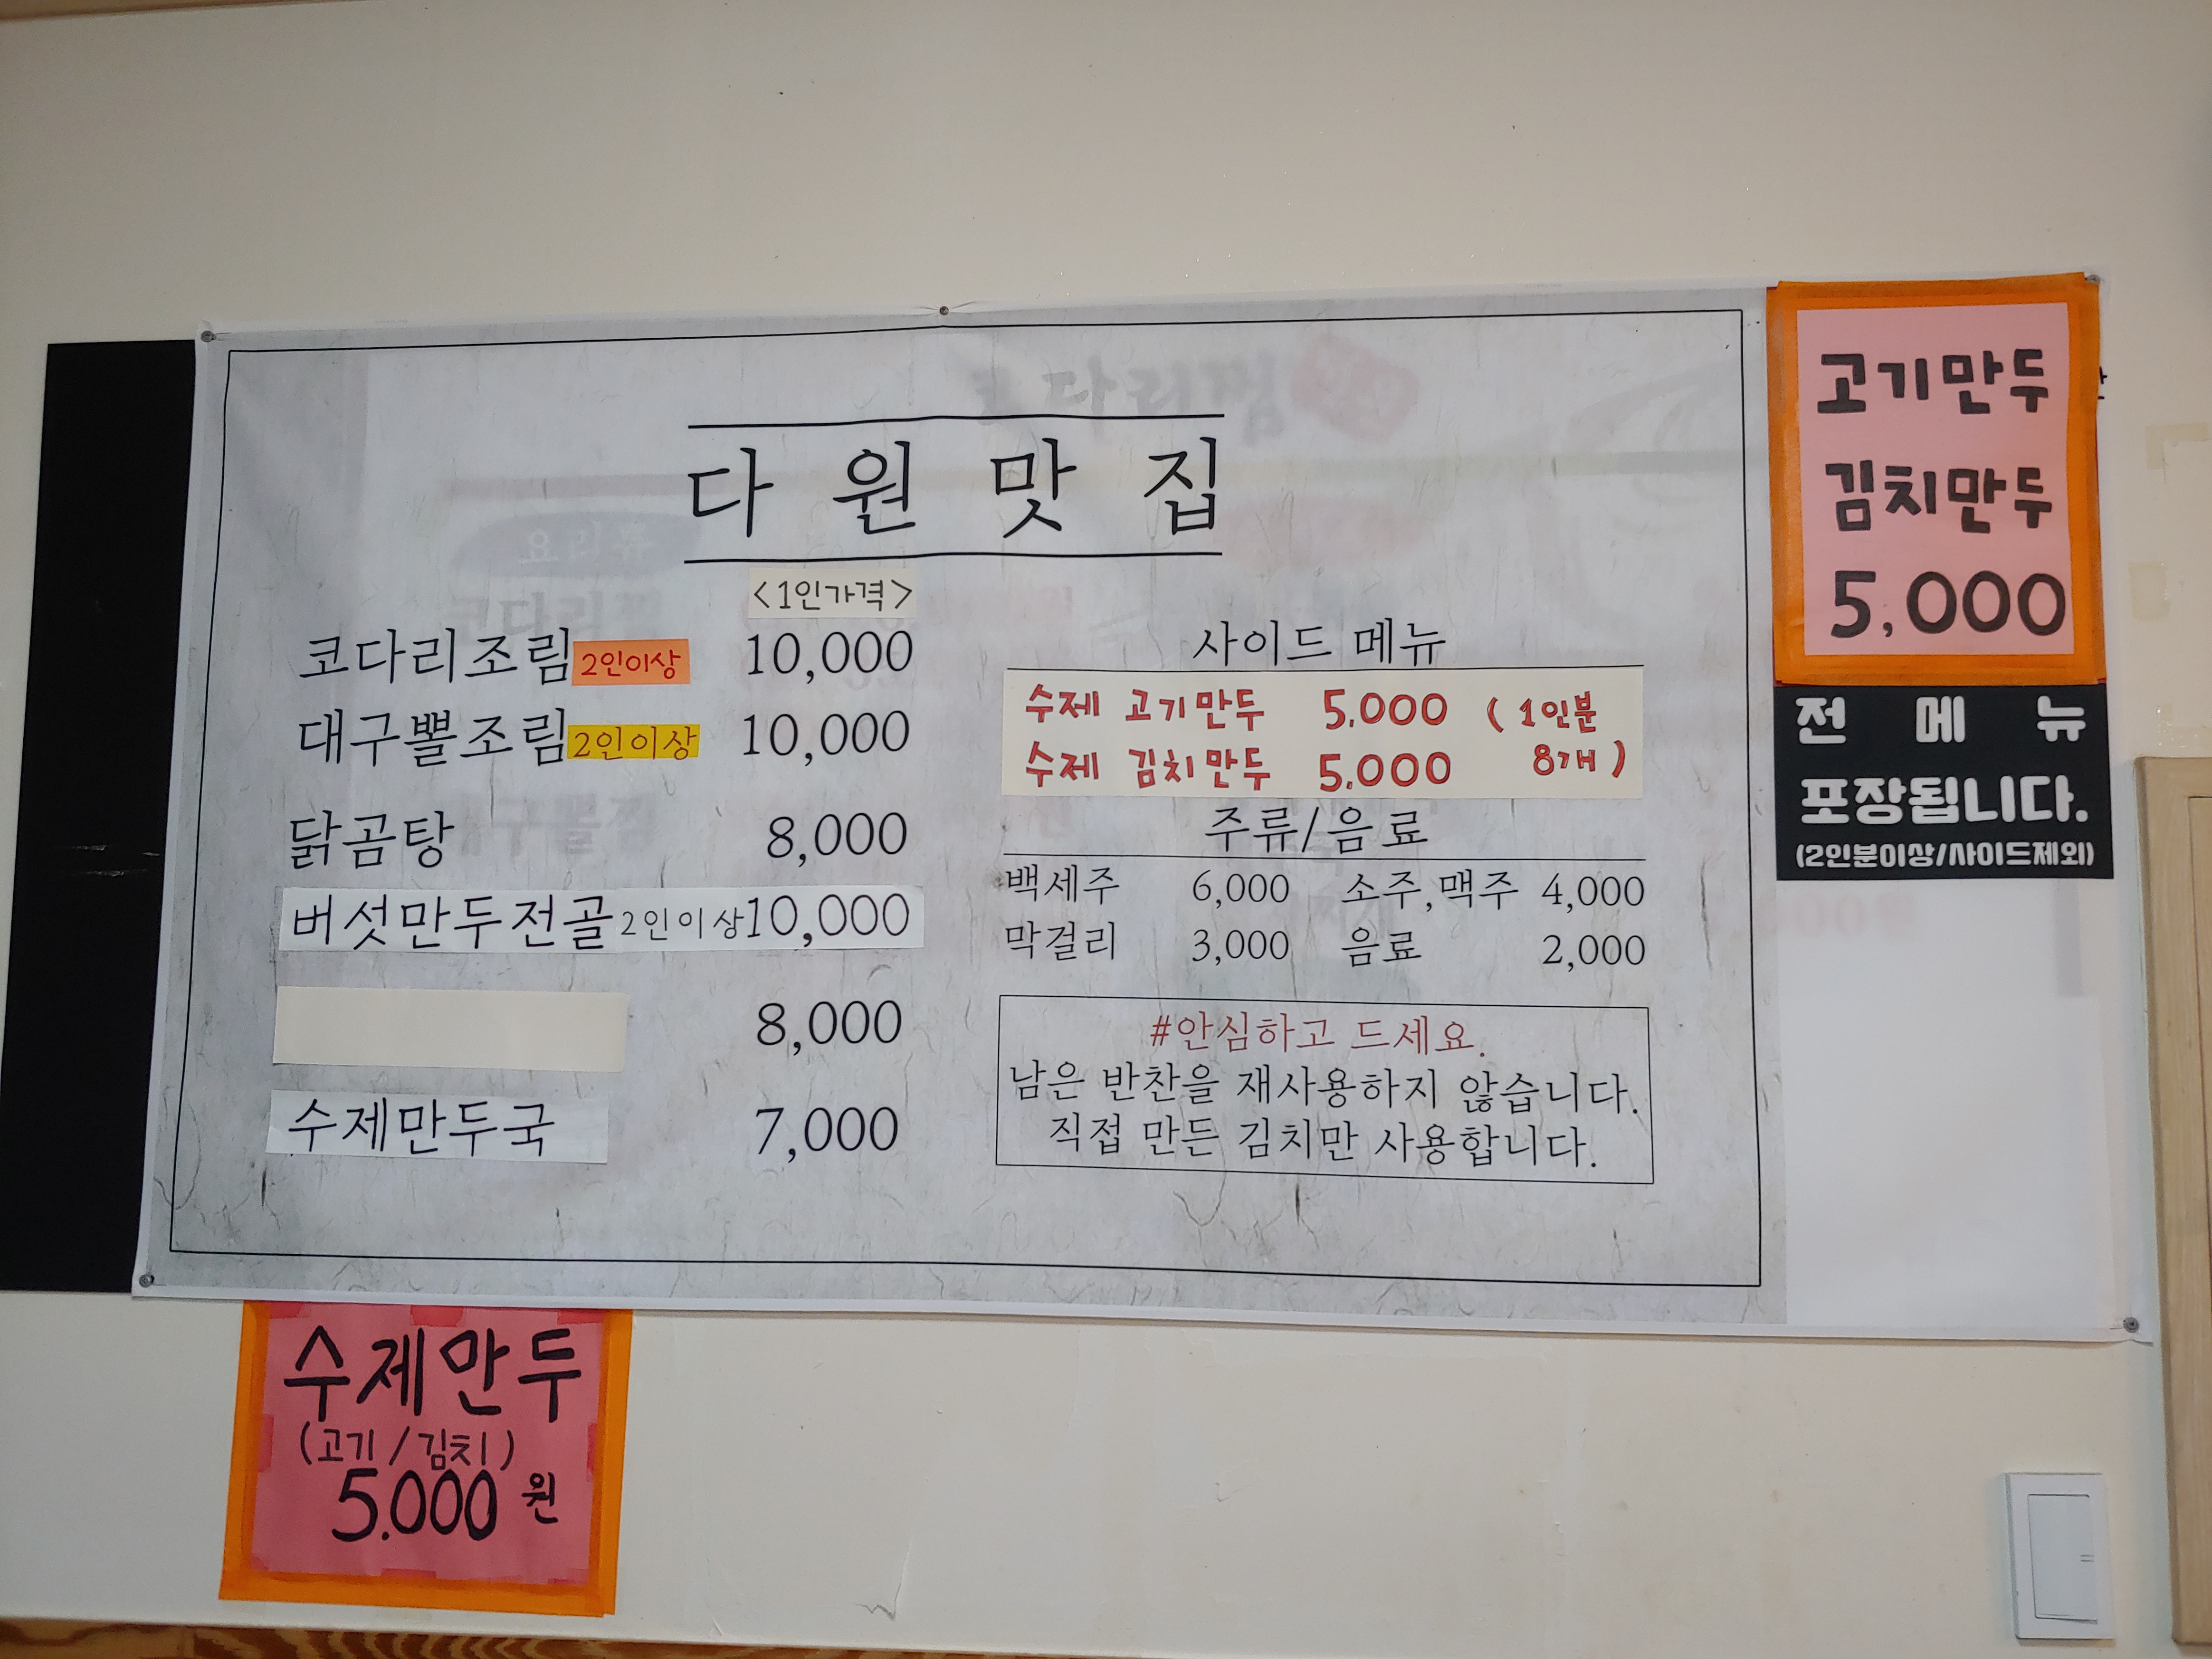 다원맛집
<1인가격>
코다리조림 2인이상 10,000
대구뽈조림 2인이상 10,000
닭곰탕 8,000
버섯만두전골 2인이상 10,000
8,000
수제만두국 7,000
사이드 메뉴
수제 고기만두 5.000 (1인분
수제 김치만두 5.000 8개)
주류/음료
백세주 6,000 소주,맥주 4,000
막걸리 3,000 음료 2,000
#안심하고 드세요.
남은 반찬을 재사용하지 않습니다.
직접 만든 김치만 사용합니다.
고기만두
김치만두
5.000
전메뉴
포장됩니다.
(2인분이상/사이드제외)
수제만두
(고기/김치)
5.000원